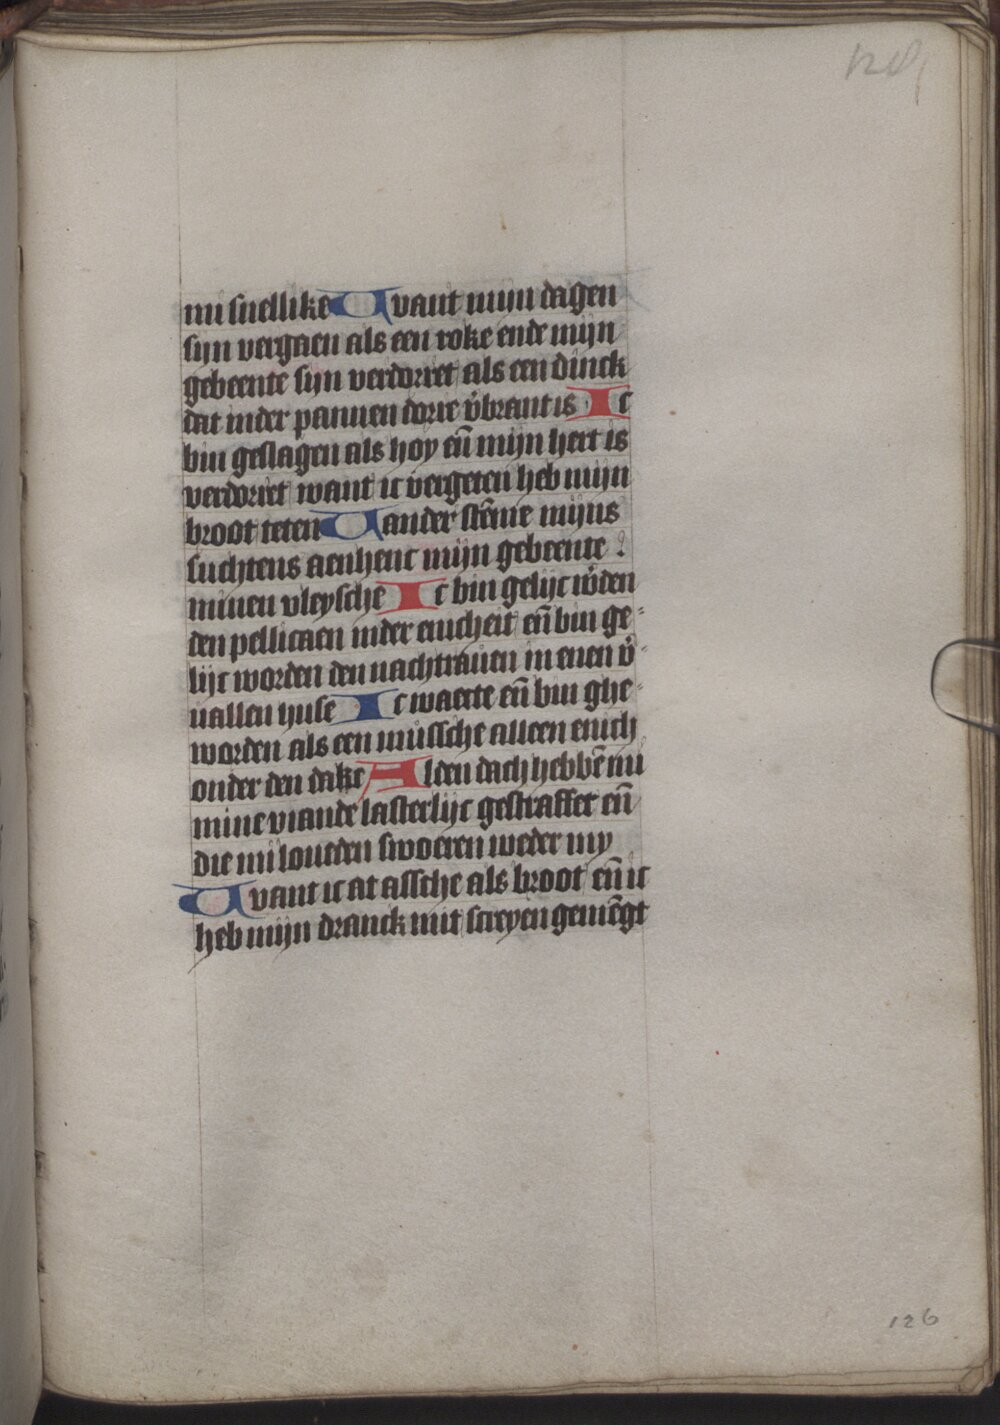 128
mi snellike Uvant mijn dagen
sijn vergaen als een roke ende mijn
gebeente sijn verdorret als een dinck
dat inder pannen dorre v̕brant is Ic
bin geslagen als hoy eñ mijn hert is
verdorret want ic vergeten heb mijn
broot teten Uander stēme mijns
suchtens aenhenc mijn gebeente
minen vleysche Ic bin gelijc wo̕den
den pellicaen inder enicheit eñ bin ge-
lijc worden den nachtrauen in enen v̕-
uallen huse Ic waecte eñ bin ghe-
worden als een mussche alleen enich
onder den dake Alden dach hebbē mi
mine viande lasterlijc gestraffet eñ
die mi loueden swoeren weder my
Uvant ic at assche als broot eñ ic
heb mijn dranck mit screyen gemēgt
126